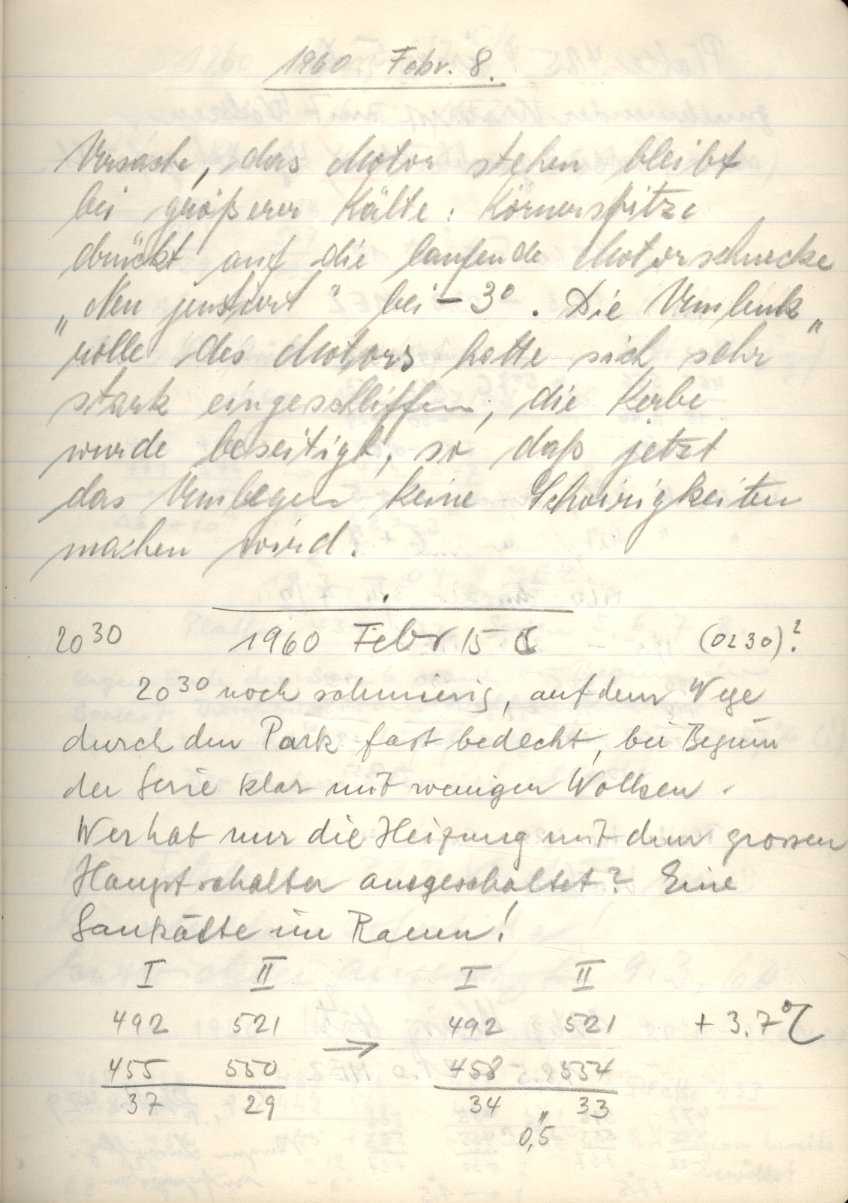 1960 Febr. 8.
Ursache, das Motor stehen bleibt
bei größerer Kälte: Körnerspitze
drückt auf die laufende Motorschnecke
„Neu justiert" bei -3°. Die Umlenk„
rolle des Motors hatte sich sehr
stark eingeschliffen, die Kerbe
wurde beseitigt, so daß jetzt
das Umlegen keine Schwirigkeiten
machen wird.
20 30 1960 Febr 15 (0230)?
20 30 noch schneeig, auf dem Wege
durch den Park fast bedeckt, bei Beginn
der Serie klar mit wenigen Wolken.
Wer hat nur die Heizung mit dem grossen
Hauptschalter ausgeschaltet? Eine
Saukälte im Raum!
I II I II
492 521 → 492 521 + 3.7°C
455 550 458 554
37 29 34 33
0",5